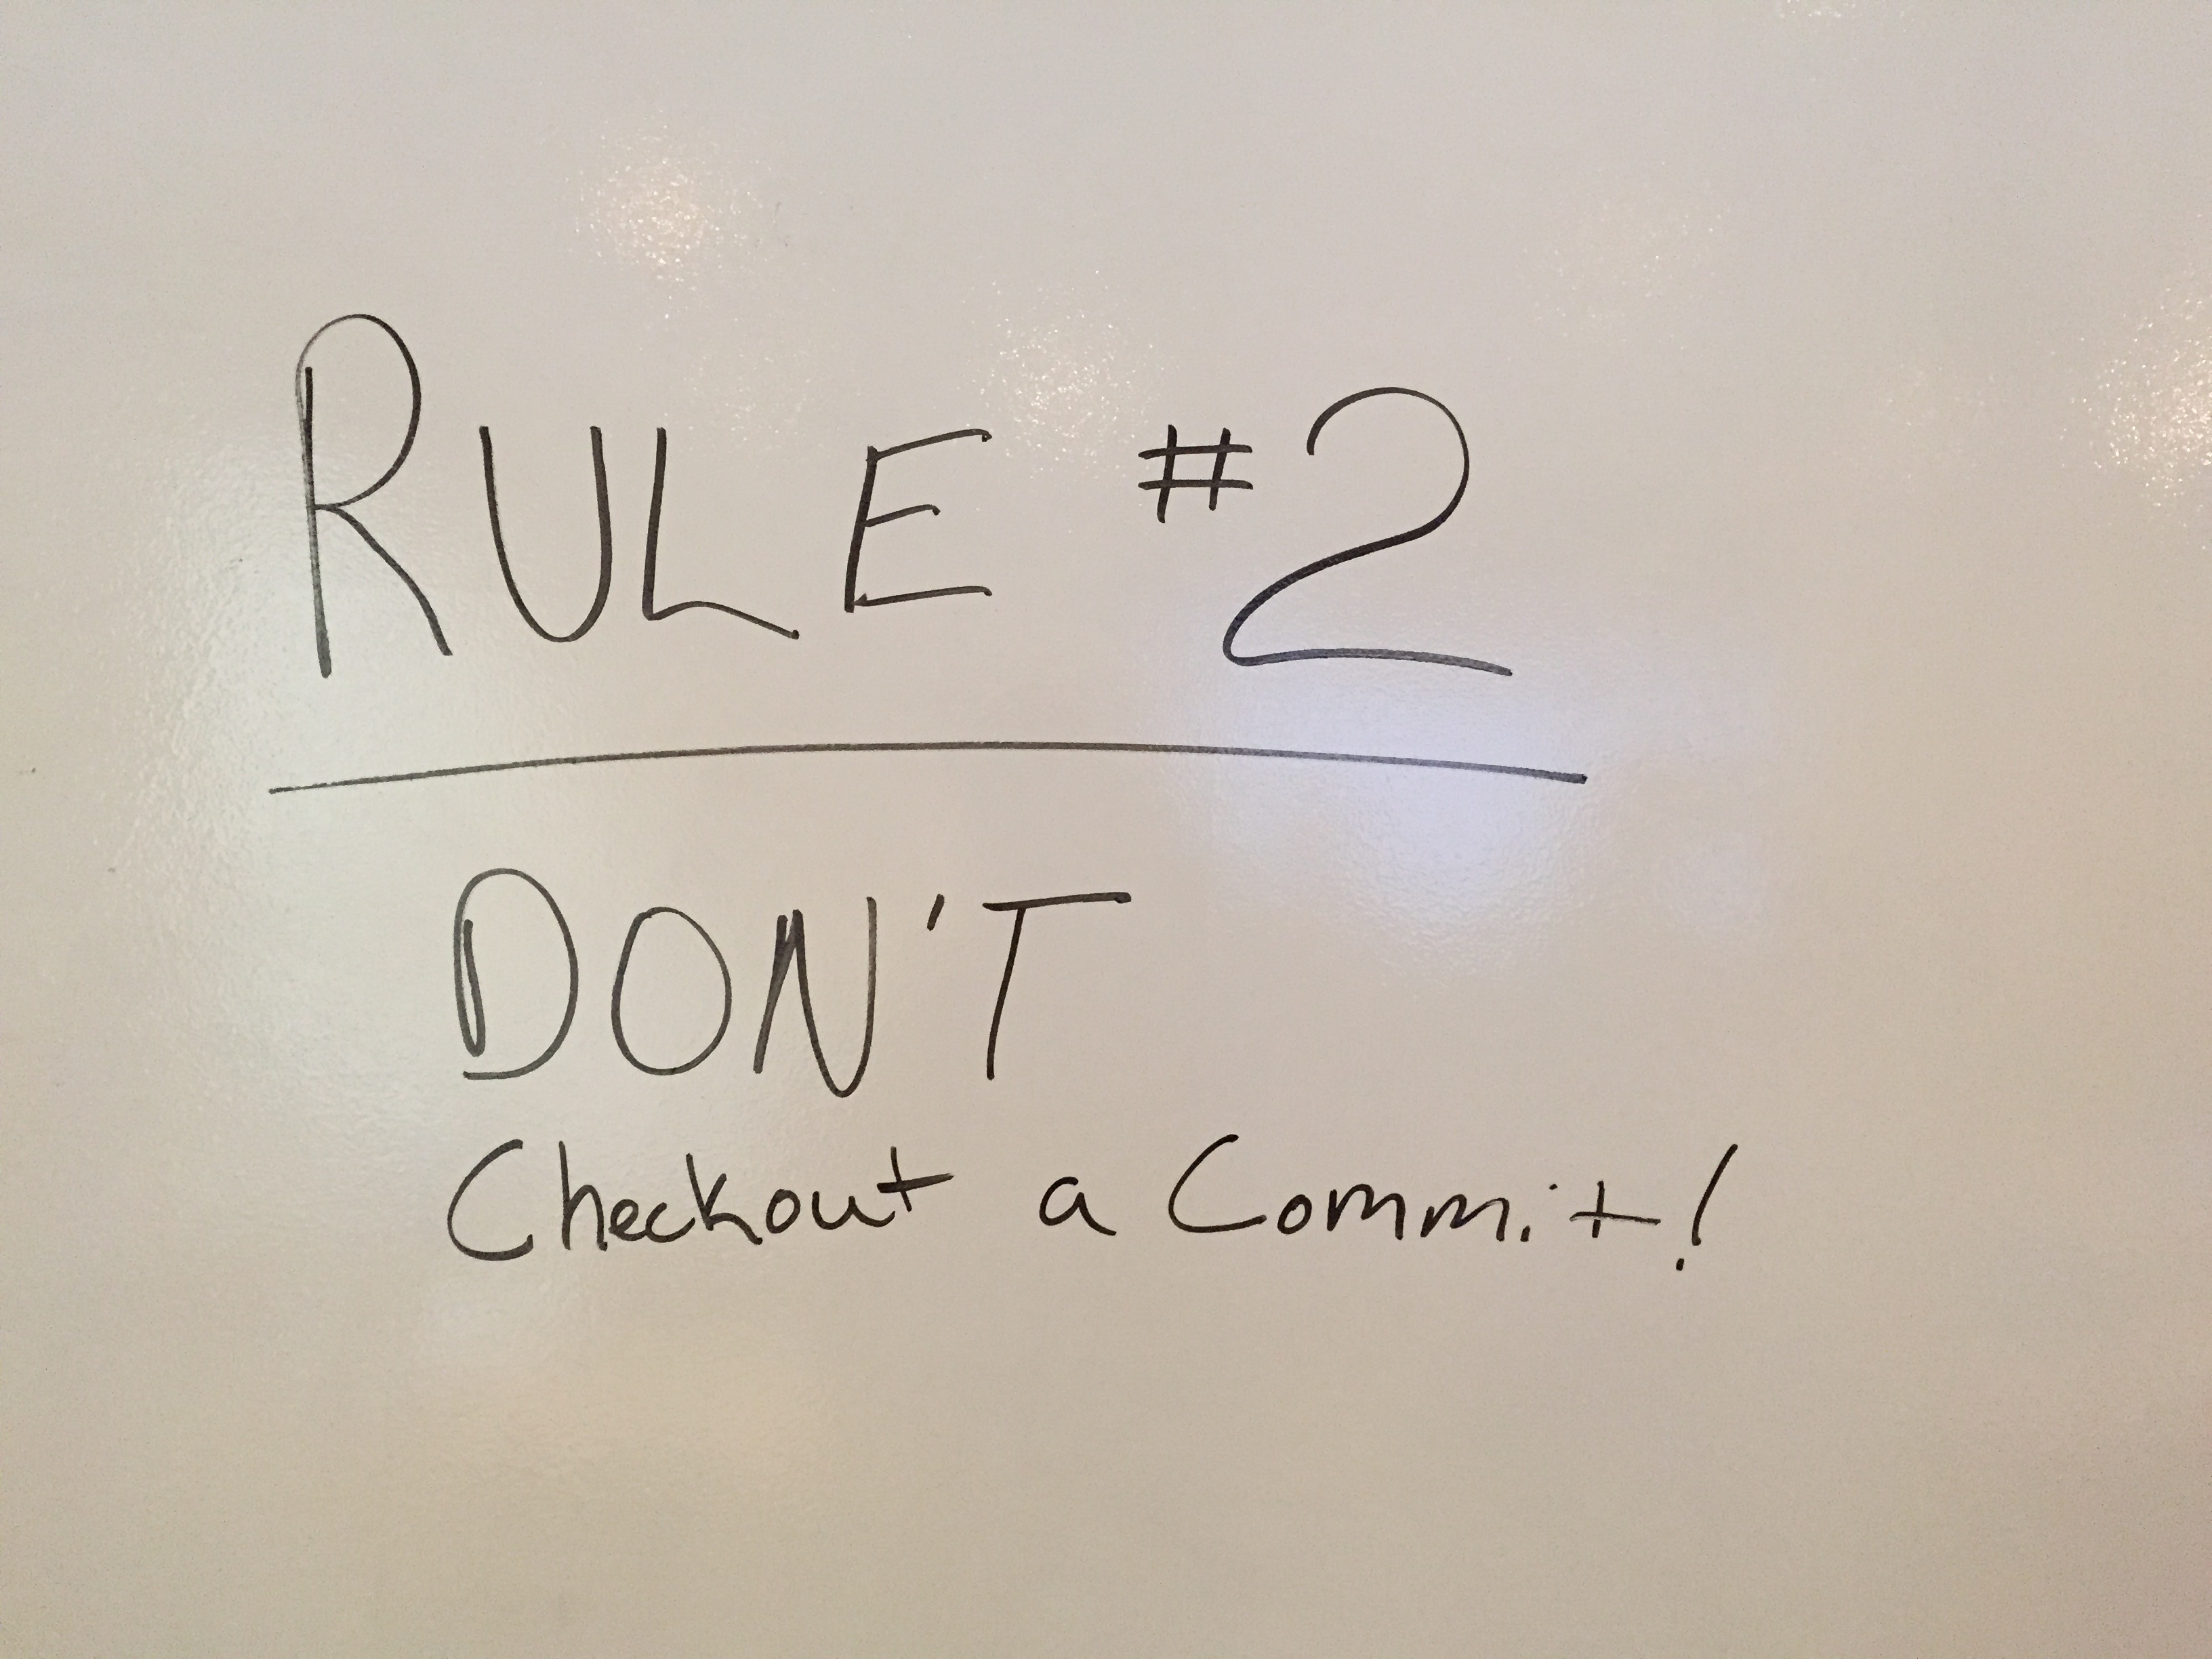 RULE #2
DON'T
Checkout a Commit!